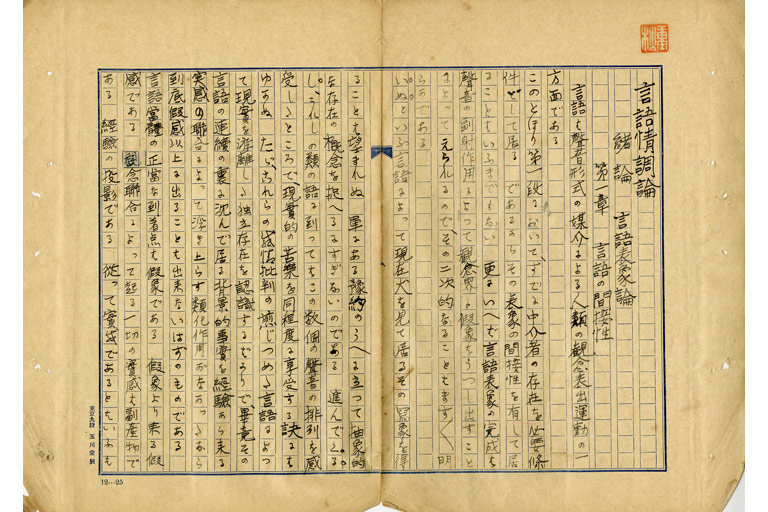 言語情調論
緒論 言語表象論
第一章 言語の間接性
言語は聲音形式の媒介による人類の觀念表出運動の一
方面である
このとほり第一段において、すでに中介者の存在を必要條
件として居る であるからその表象の間接性を有して居
ることはいふまでもない 更にいへば言語表象の完成は
聲音の副射作用によつて觀念界に假象をうつし出すこと
によつてえられるので、その二次的なることはます〱明
らかである
いぬといふ言語によつて現在犬を見て居るその 象を得
ることは望まれぬ 單なる豫約のうへに立つて抽象的
な存在の概念を捉へるにすぎないのである 進んでくる
し、うれしの類の語に到つてもこの数個の聲音の排列を感
受したところで、現實的の苦樂を同程度に享受する訣には
ゆかぬ たゞこれらの感情批判の煎じつめた言語によつ
て現實を游離した獨立存在を認識するばかりで畢竟その
言語の連續の裏に沈んで居る背景的事實を經驗から来る
實感の聯合によつて浮き上らす類化作用がなかつたなら
到底假感以上に出ることも出来ないはずのものである
言語當體の正當な到着點は假象である 假象より来る假
感である 觀念聯合によつて起る一切の實感は副産物で
ある 經驗の投影である 從つて實感であるとはいふも
東京九段 玉川堂製
12…25